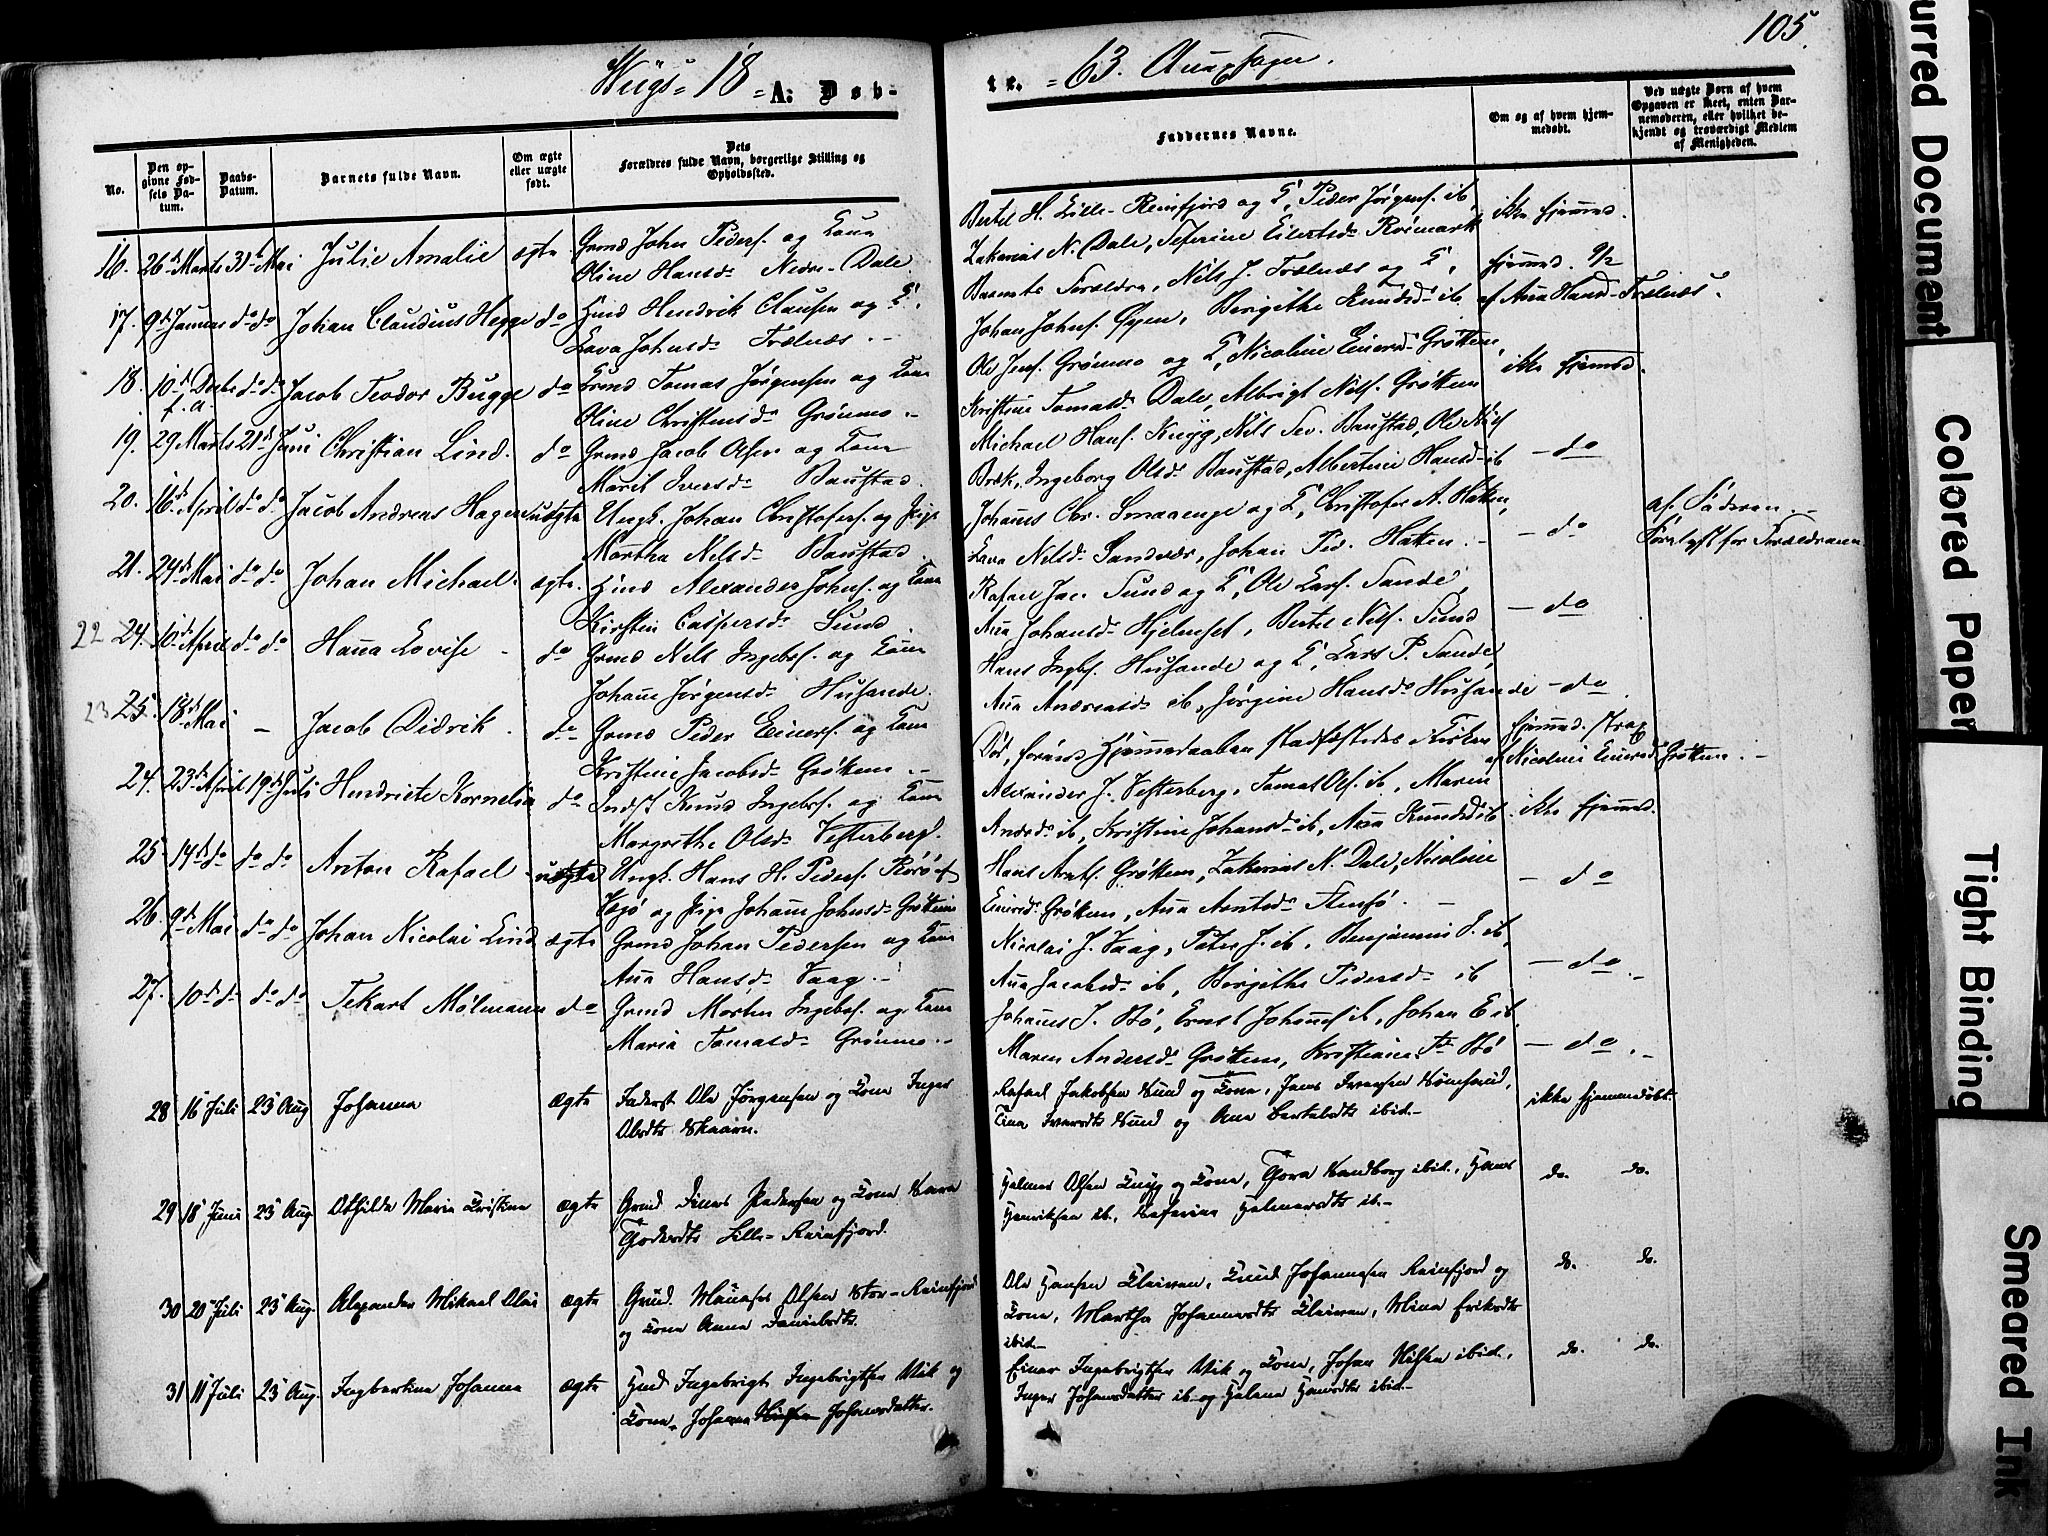 105.
18 = A: Døb-
te. = 63.
No.
Den op-
givne Fød-
sels Da-
tum.
Daabs-
Datum.
Barnets fulde Navn.
Om ægte
eller uægte
født.
Dets
Forældres fulde Navn, borgerlige Stilling og
Opholdssted.
Faddernes Navne.
Om og af hvem hjem-
medøbt.
Ved uægte Børn af hvem
Opgaven er skeet, enten Bar-
nemoderen, eller hvilket be-
kjendt og troværdigt Medlem
af Menigheden.
16. 26d Marts 31d Mai Julie Amalie ægte Grmd John Peders. og Kone
Oline Hansd. Nedre-Dale
Bertel H. Lille-Reinsfjord og K, Peder Jørgens. ib,
Zakarias N. Dale, Seferine Eilertsd.
ikke hjemmed.
17. 9d Januar do do Johan Claudius Hegge do Hmd Hendrik Clausen og K,
Lava Johnsd. Trælnæs.
Barnets Forældre, Nils J. Trælnæs og K,
Johan Johns. Øyen, Birgithe Knudsd. ib.
hjemmed. 9/2
af Ana Hansd. Trælnæs.
18. 10d Decbr f. a. do do Jacob Teodor Bugge do Grmd Tomas Jørgensen og Kone
Oline Christensd. Grønmo.
Ole Jens. Grønmo og K, Nicoline Einersd. Grøttem,
Kristine Tomasd. Dale, Albrigt Nils. Grøttem
ikke hjemmed.
19. 29 Marts 21d Juni Christian Lind. do Grmd Jacob Olsen og Kone
Marit Iversd. Baustad.
Michael Hans. Knyg, Nils Sev. Baustad, Ole Nils
Bræk, Ingeborg Olsd. Baustad, Albertine Hansd. ib
- do
20. 16d April do do Jacob Andreas Hagen uægte Ungk. Johan Christofers. og Pige
Martha Nilsd. Baustad.
Johans Chr. Smaaenge og K, Christofer A. Hatten,
Lava Nilsd. Sandvær, Johan Ped. Hatten.
- do
af Faderen.
for Forældrene
21. 24d Mai do do Johan Michael. ægte. Hmd Alexander Johns. og Kone
Kirsten Caspersd. Sund.
Rafael Jac. Sund og K, Ole Lars. Sande,
Ana Johansd. Hjelmset, Bertel Nils. Sund
- do
22 24. 10d April do do Hana Lovise do Grmd Nils Ingebr. og Kone
Johane Jørgensd. Husande.
Hans Ingbr. Husande og K, Lars P. Sande,
Ana Andreasd. ib, Jørgine Hansd. Husande
- do.
23 25. 18d Mai - Jacob Didrik. do Grmd Peder Einers. og Kone
Kristine Jacobsd. Grøttem.
Død, førend Hjemmedaaben stadfæstedes i Kirken
hjemmed. strax
af Nicoline Einersd. Grøttem.
24. 23d April 19d Juli Hendriete Kornelia do Indst Knud Ingebr. og Kone
Margrethe Olsd. Vesterberg.
Alexander J. Vesterberg, Tomas Ols. ib, Maren
Andsd. ib, Kristine Johansd. ib, Ana Knudsd. ib.
ikke hjemmed.
25. 14d do do do Anton Rafael uægte Ungk. Hans H. Peders.
Vegø og Pige Johane Johnsd. Grøttem
Hans Arnts. Grøttem, Zakarias N. Dale, Nicoline
Einersd. Grøttem, Ana Arntsd.
- do
26. 9d Mai do do Johan Nicolai Lind ægte Grmd Johan Pedersen og Kone
Ana Hansd. Vaag.
Nicolai J. Vaag, Peter J. ib, Benjamin P. ib,
Ana Jacobsd. ib, Birgithe Pedersd. ib
- do.
27. 10d do do do Tekart Mølmann do Grmd Morten Ingebr. og Kone
Maria Tomasd. Grønmo.
Johans J. Bø, Ernst Johans. ib, Johan E. ib.
Maren Andersd. Grøttem, Kristiane Bø
- do.
28 16 Juli 23 Aug Johanna ægte Ole Jørgensen og Kone Inger
Olsdtr Skaarn.
Rafael Jakobsen Sund og Kone, Jens Iversen
Tina Iversdtr Sund og Ane Bertelsdtr ibid.
ikke hjemmedøbt.
29 18 Juni 23 Aug. Othilde Maria Kristine ægte Grmd Einer Pedersen og Kone Sara
Lille-Reinsfjord.
Olsen Knyg og Kone, Sandborg ibid., Hans
Henriksen ib.
do. do.
30 20 Juli 23 Aug. Alexander Mikael Olai ægte Grmd. Manases Olsen Stor-Reinsfjord
og Kone Anna Danielsdtr.
Ole Hansen Kleiven, Knud Johannesen Reinsfjord og
Kone, Martha Johannesdtr Kleiven, Mina Eriksdtr
ibid.
do. do.
31 11 Juli 23 Aug. Ingbertine Johanna ægte Hmd Ingebrigt Ingebrigtsen Vik og
Kone, Johanna Johansdatter.
Einar Ingebrigtsen Vik og Kone, Johan Nilsen ibid.,
Inger Johansdatter ib. og ibid.
do. do.
urred Document
Colored Paper
Tight Binding
Smeared Ink